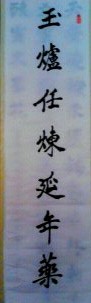 玉爐任煉延年藥